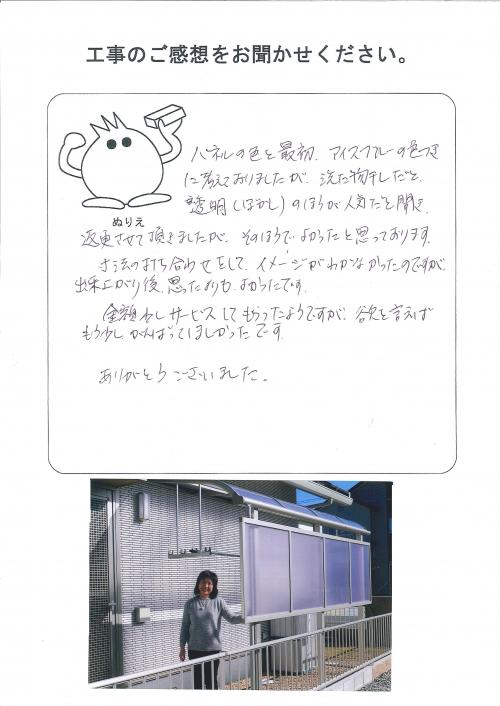 工事のご感想をお聞かせください。
ぬりえ
パネルの色を最初、アイスブルーの色つき
に考えておりましたが、洗た物干しだと、
透明(ぼかし)のほうが人気だと聞き、
変更させて頂きましたが、そのほうで、よかったと思っております。
寸法の打ち合わせをして、イメージがわかなかったのですが、
出来上がり後、思ったよりも、よかったです。
金額少しサービスしてもらったようですが、欲を言えば
もう少しがんばってほしかったです。
ありがとうございました。